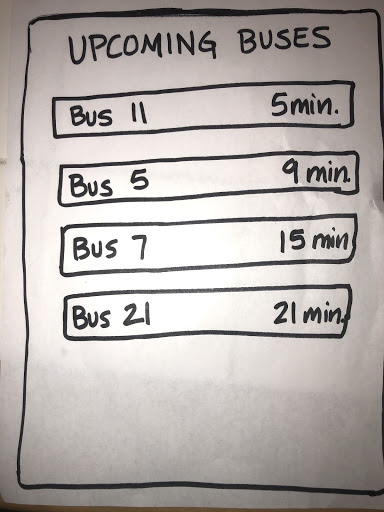 UPCOMING BUSES
Bus 11 5min.
Bus 5 9 min.
Bus 7 15 min
Bus 21 21 min.